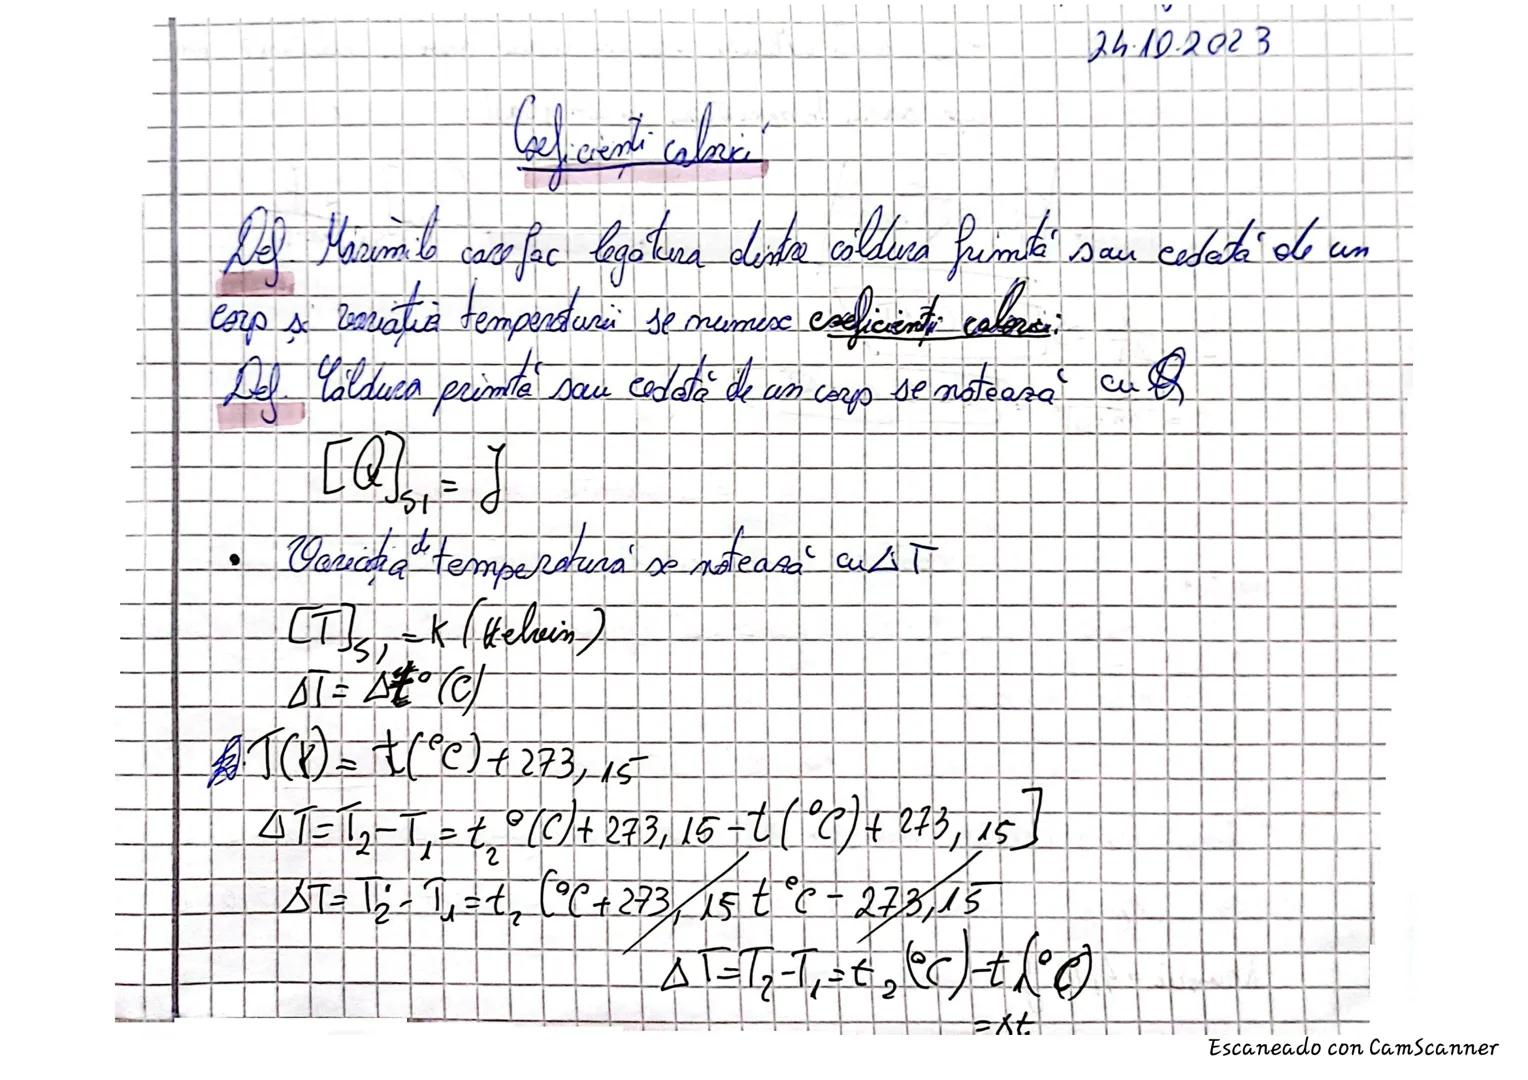 24.10.2023
Coeficienți calorici
Def. Mărimile care fac legătura dintre căldura primită sau cedată de un
corp și variația temperaturii se numesc coeficienți calorici.
Def. Căldura primită sau cedată de un corp se notează cu Q
[Q]SI = J
• Variația de temperatură se notează cu ΔT
[T]SI = K (Kelvin)
ΔT = Δt°(C)
T(K) = t(°C) + 273,15
ΔT = T₂ - T₁ = t₂°(C) + 273,15 - t(°C) + 273,15]
ΔT = T₂ - T₁ = t₂ (°C + 273,15 t°C - 273,15
ΔT = T₂ - T₁ = t₂(°C) - t₁(°C)
= Δt
Escaneado con CamScanner